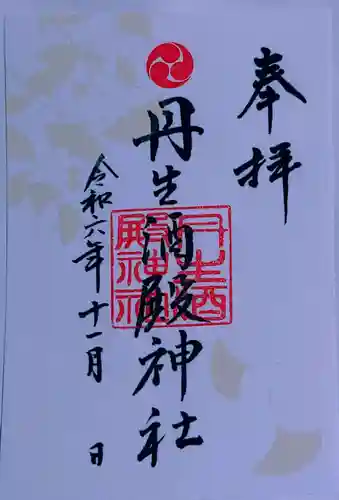 奉拝
丹生酒殿神社
丹生酒殿神社
令和六年十一月 日